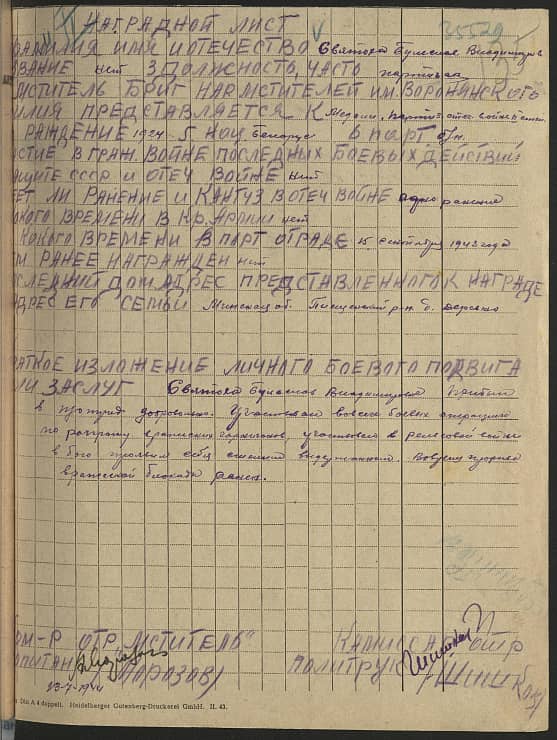 НАГРАДНОЙ ЛИСТ
35529
АМИЛИЯ ИМЯ И ОТЕЧЕСТВО Святоха Булеслав Владимиров
ВАНИЕ нет 3 ДОЛЖНОСТЬ, ЧАСТЬ партизан
МСТИТЕЛЬ БРИГ НАР МСТИТЕЛЕЙ ИМ. ВОРОНЯНСКОГО
ИЛИЯ ПРЕДСТАВЛЯЕТСЯ К Медали, отеч. войны
РАЖДЕНИЕ 1924 5 Нац Беларус 6 ПАРТ б/п.
СТИЕ В ГРАЖ. ВОЙНЕ ПОСЛЕДНЫХ БОЕВЫХ ДЕЙСТВИЙ
АЩИТЕ СССР И ОТЕЧ ВОЙНЕ нет
ЕТ ЛИ РАНЕНИЕ И КАНТУЗ В ОТЕЧ ВОЙНЕ одно ранение
КОГО ВРЕМЕНИ В КР. АРМИИ нет
КОКОГО ВРЕМЕНИ В ПАРТ ОТРАДЕ 15 сентября 1943 года
М РАНЕЕ НАГРАЖДЕН нет
СЛЕДНИЙ ДОМ. АДРЕС ПРЕДСТАВЛЕННОГО К НАГРАДЕ
ДРЕС ЕГО СЕМЬИ Минская об. р-н д.
АТКОЕ ИЗЛОЖЕНИЕ ЛИЧНОГО БОЕВОГО ПОДВИГА
ЛИ ЗАСЛУГ Святоха Булеслав Владимирович прибыл
в добровольно. Участвовал во всех боевых операциях
по разгрому вражеских гарнизонов, участвовал в рельсовой войне
в бою проявил себя смелым выдержанным. Вовремя прорыва
вражеской блокады ранен.
ОМ-Р ОТР „МСТИТЕЛЬ" КАМИССАР ОТР
ПИТАН (МОРОЗОВ) ПОЛИТРУК (ШИШКОВ)
23-7-1944
Din A 4 doppelt. Heidelberger Gutenberg-Druckerei GmbH. II. 43.